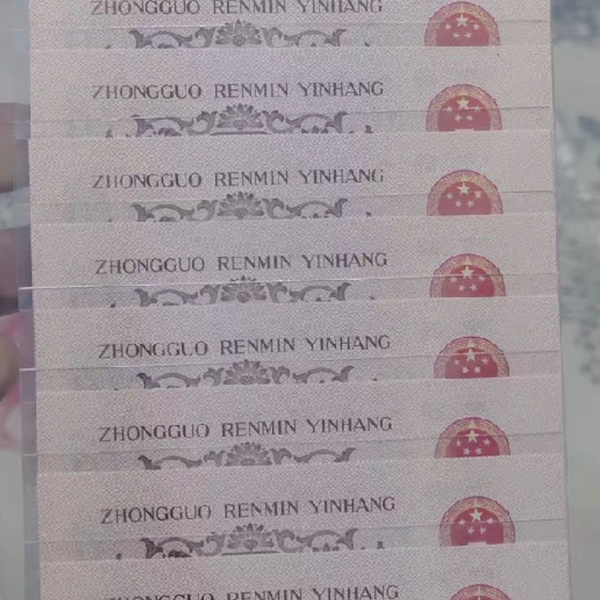 ZHONGGUO RENMIN YINHANG
ZHONGGUO RENMIN YINHANG
ZHONGGUO RENMIN YINHANG
ZHONGGUO RENMIN YINHANG
ZHONGGUO RENMIN YINHANG
ZHONGGUO RENMIN YINHANG
ZHONGGUO RENMIN YINHANG
ZHONGGUO RENMIN YINHANG